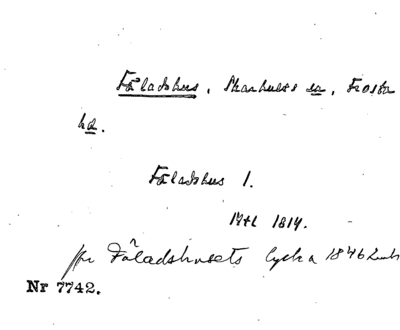 Fäladshus, Skarhults sn, Frosta
hd.
Fäladshus 1.
1814.
Fäladshusets lycka 1846
Nr 7742.